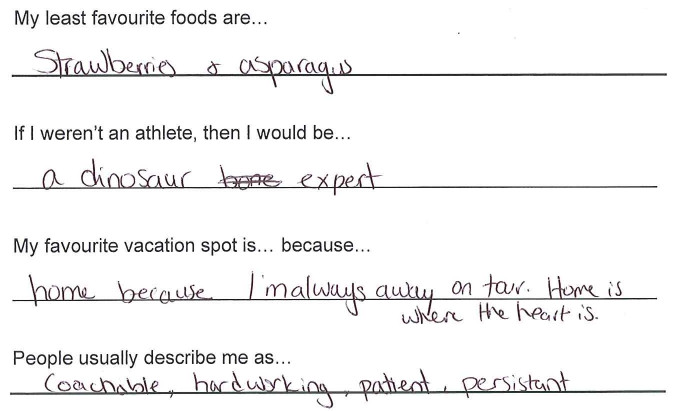 My least favourite foods are...
Strawberries & asparagus
If I weren't an athlete, then I would be...
a dinosaur bone expert
My favourite vacation spot is... because...
home because I'm always away on tour. Home is
where the heart is.
People usually describe me as...
Coachable, hardworking, patient, persistant